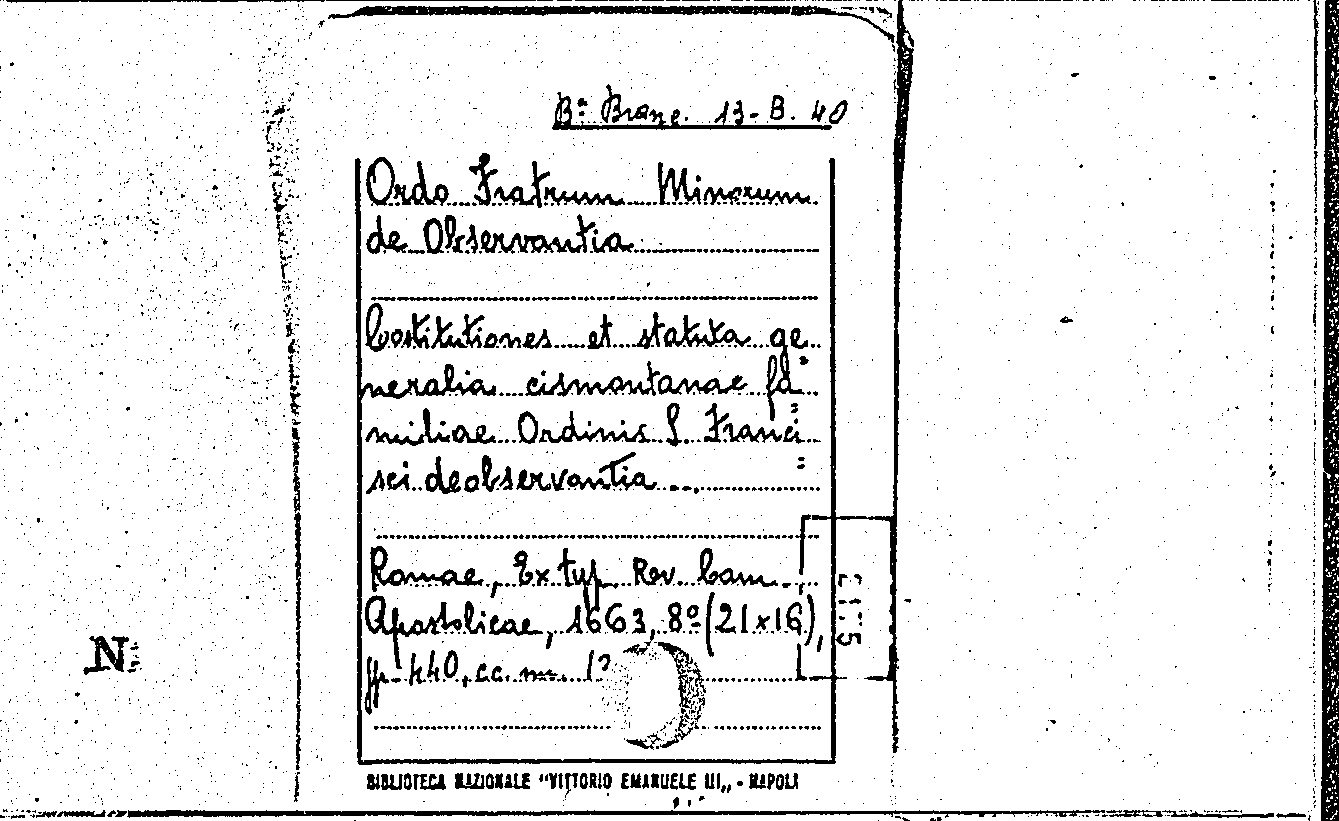 Bª Branc. 13-B. 40
Ordo Fratrum Minorum
de Observantia
Costitutiones et statuta ge
neralia cismontanae fa=
miliae Ordinis S. Franci=
sci deobservantia ...
Romae, Ex typ. Rev. Cam.
Apostolicae, 1663, 8º (21x16),
pp. 440, cc. nn.
21,5
N
BIBLIOTECA NAZIONALE "VITTORIO EMANUELE III,, - NAPOLI